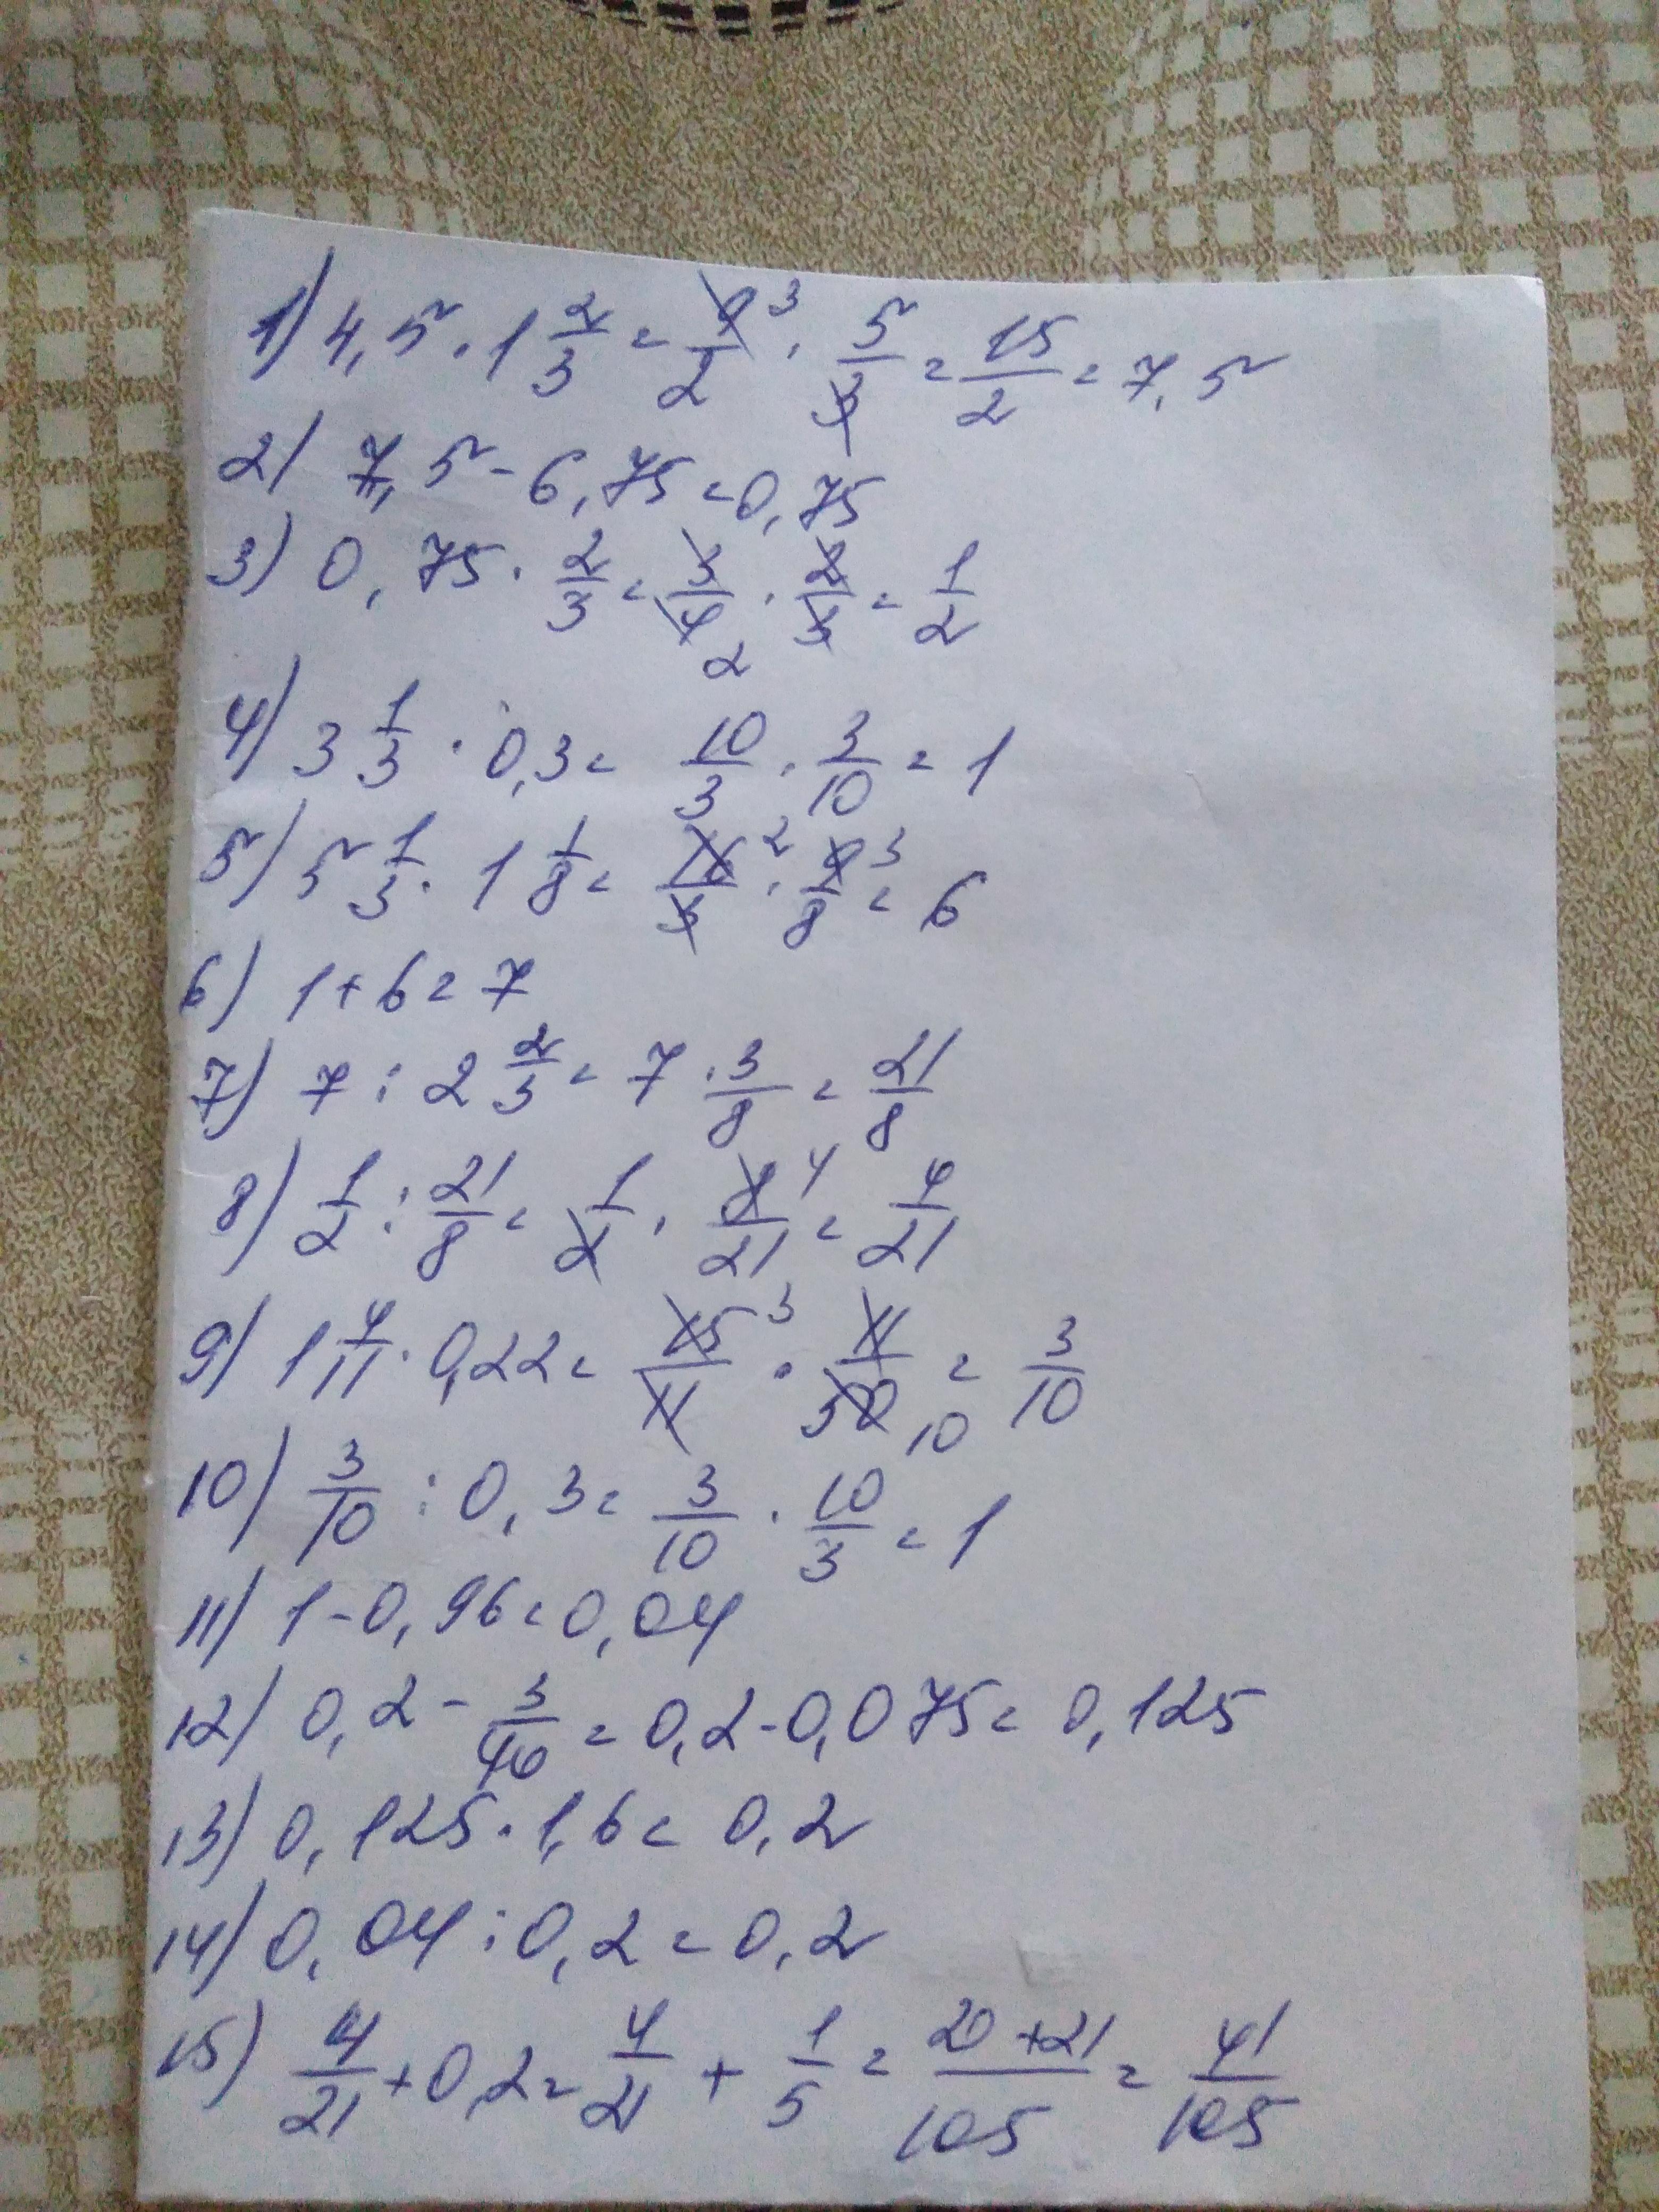 1) 4,5 · 1 2/3 = 9/2 3 · 5/3 = 15/2 = 7,5
2) 7,5 - 6,75 = 0,75
3) 0,75 · 2/3 = 3/4 2 · 2/3 = 1/2
4) 3 1/3 · 0,3 = 10/3 · 3/10 = 1
5) 5 1/3 · 1 1/8 = 16/3 2 · 9/8 3 = 6
6) 1 + 6 = 7
7) 7 : 2 2/3 = 7 · 3/8 = 21/8
8) 1/2 : 21/8 = 1/2 · 8/21 4 = 4/21
9) 1 4/11 · 0,22 = 15/11 3 · 11/50 10 = 3/10
10) 3/10 : 0,3 = 3/10 · 10/3 = 1
11) 1 - 0,96 = 0,04
12) 0,2 - 3/40 = 0,2 - 0,075 = 0,125
13) 0,125 · 1,6 = 0,2
14) 0,04 : 0,2 = 0,2
15) 4/21 + 0,2 = 4/21 + 1/5 = 20 + 21/105 = 41/105